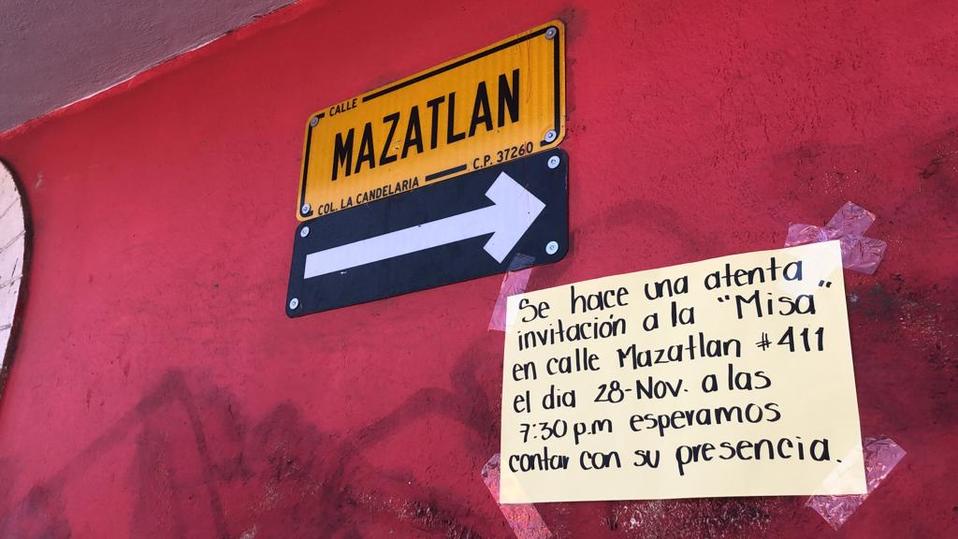 CALLE
MAZATLAN
COL. LA CANDELARIA C.P. 37260
Se hace una atenta
invitación a la "Misa"
en calle Mazatlan #411
el dia 28-Nov. a las
7:30 p.m esperamos
contar con su presencia.